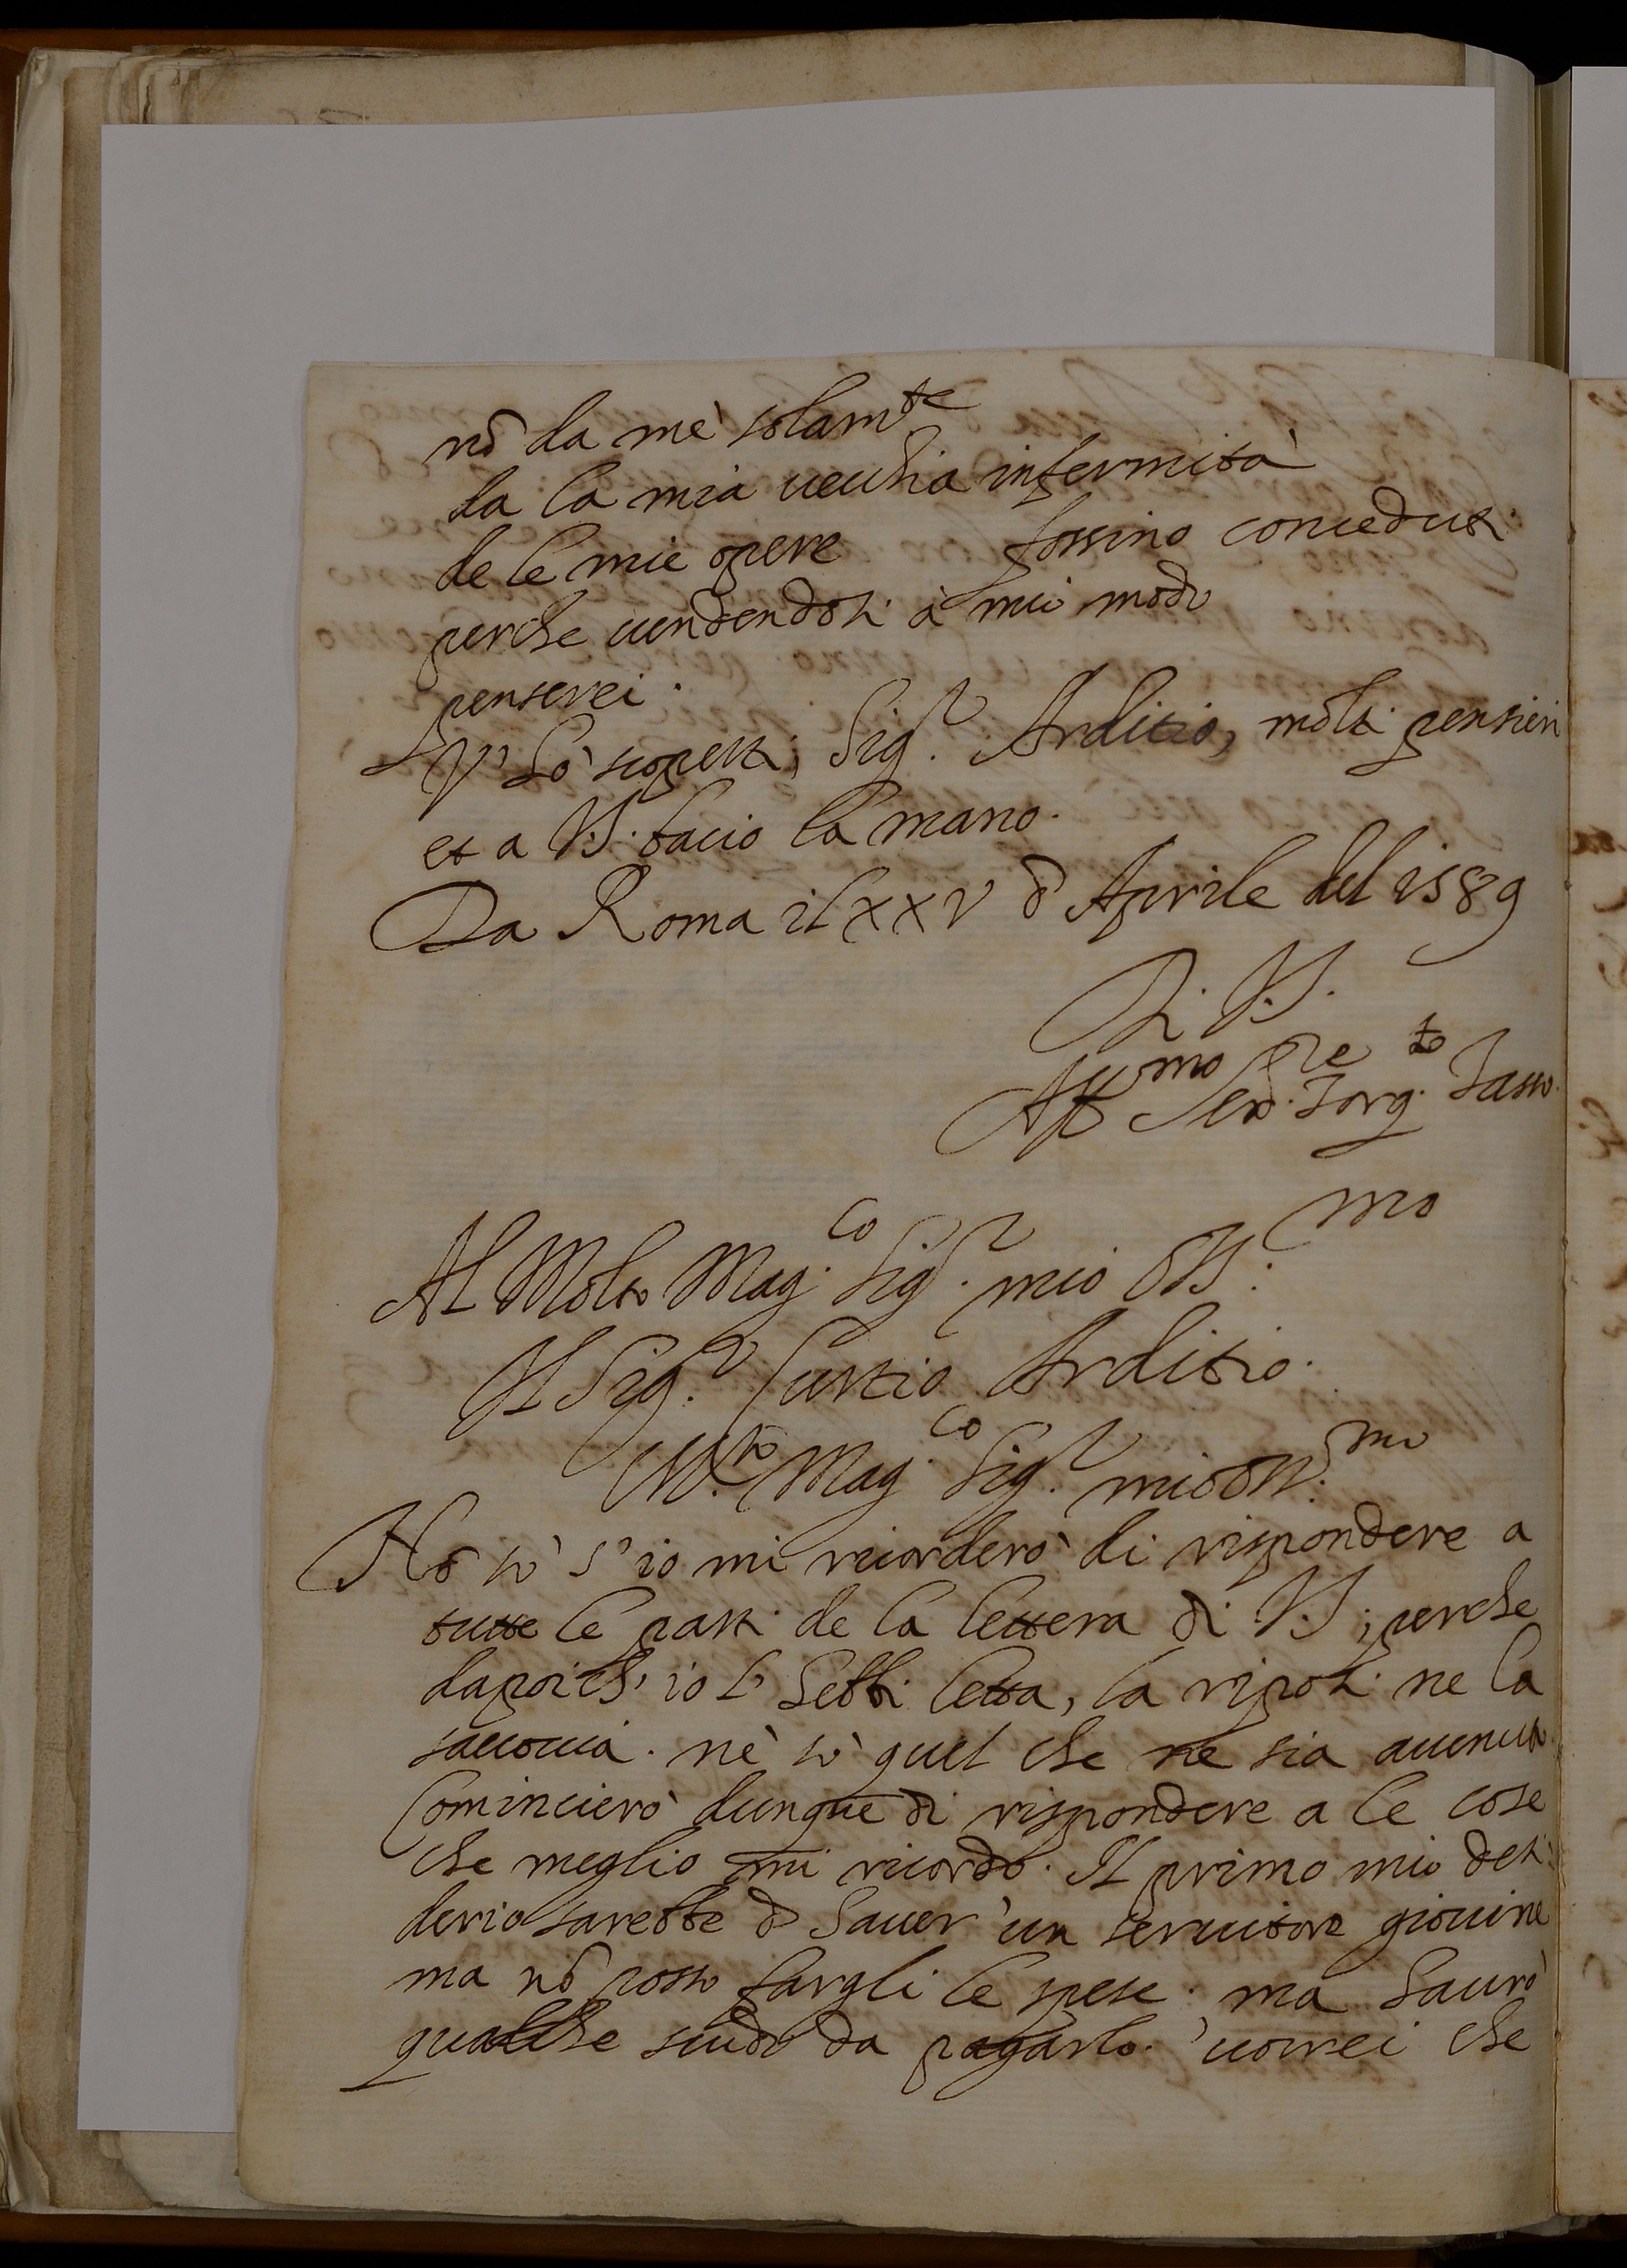 nō da mè solam.te
da la mia uecchia infermità
de le mie opere fossino conceduti
perche uendendoli à mio modo
penserei.
V' hò scoperti, Sig.r Arditio, molti pensieri
et a V.S. bacio la mano.
Da Roma il xxv d' Aprile del 1589
Di V.S.
Aff.mo Ser.re Torq.to Tasso.
Al Molto Mag.co Sig.r mio Oss.mo
Il Sig.r Curtio Arditio.
M.to Mag.co Sig.r mio oss.mo
Nō sò s'io mi ricorderò di rispondere a
tutte le parti de la lettera di V.S; perche
dapoi ch' io l' hebbi letta, la riposi ne la
saccoccia. nè sò quel che ne sia auenuto.
Comincierò dunque di rispondere a le cose
che meglio mi ricordo. Il primo mio desi
derio sarebbe d' hauer un seruitore giouine
ma nō posso fargli le spese. ma haurò
qualche scudo da pagarlo. uorrei che